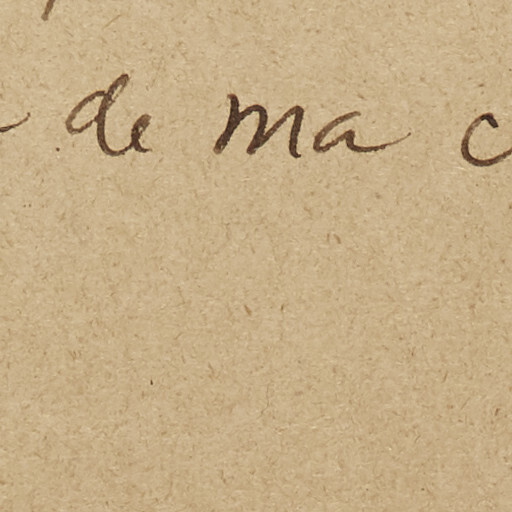 de ma